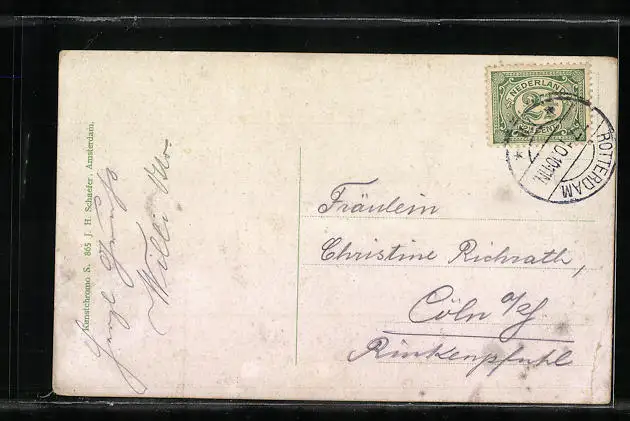 Kunstchromo S. 865 J. H. Schaefer, Amsterdam.
Herzl. Gruß
Willi
NEDERLAND
2½
CENT
ROTTERDAM
Fräulein
Christine Richrath,
Cöln a/R
Rinkenpfuhl